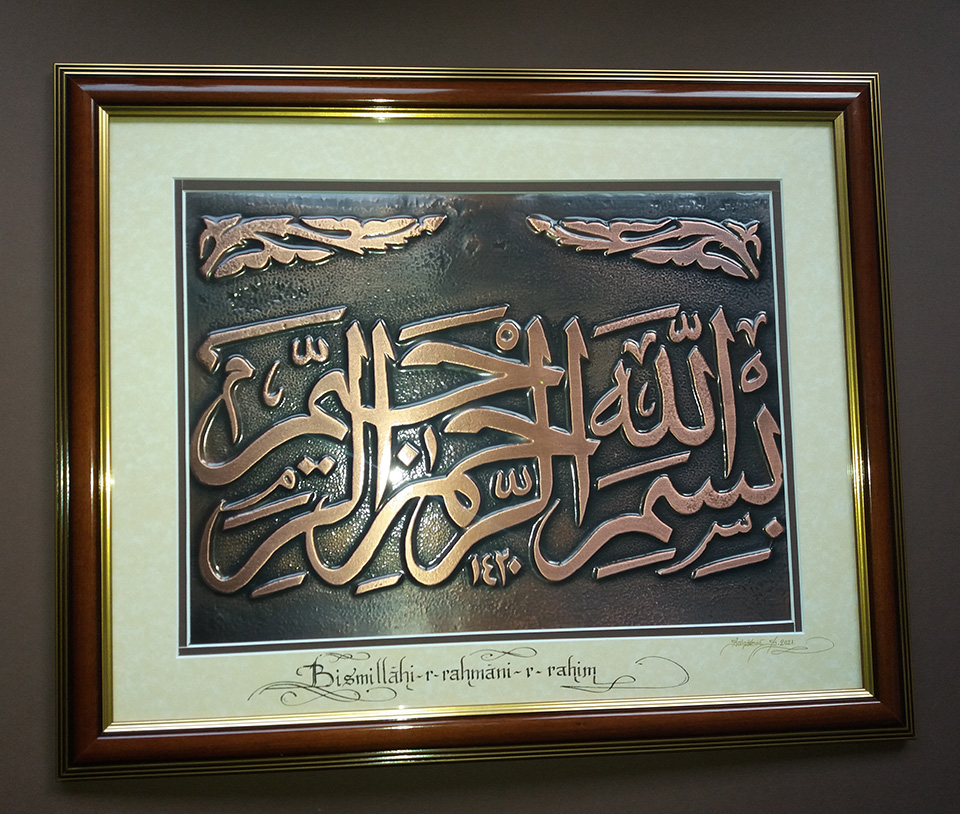 بسم الله الرحمن الرحيم
١٤٢٠
Bismillāhi-r-rahmāni-r-rahim
2021